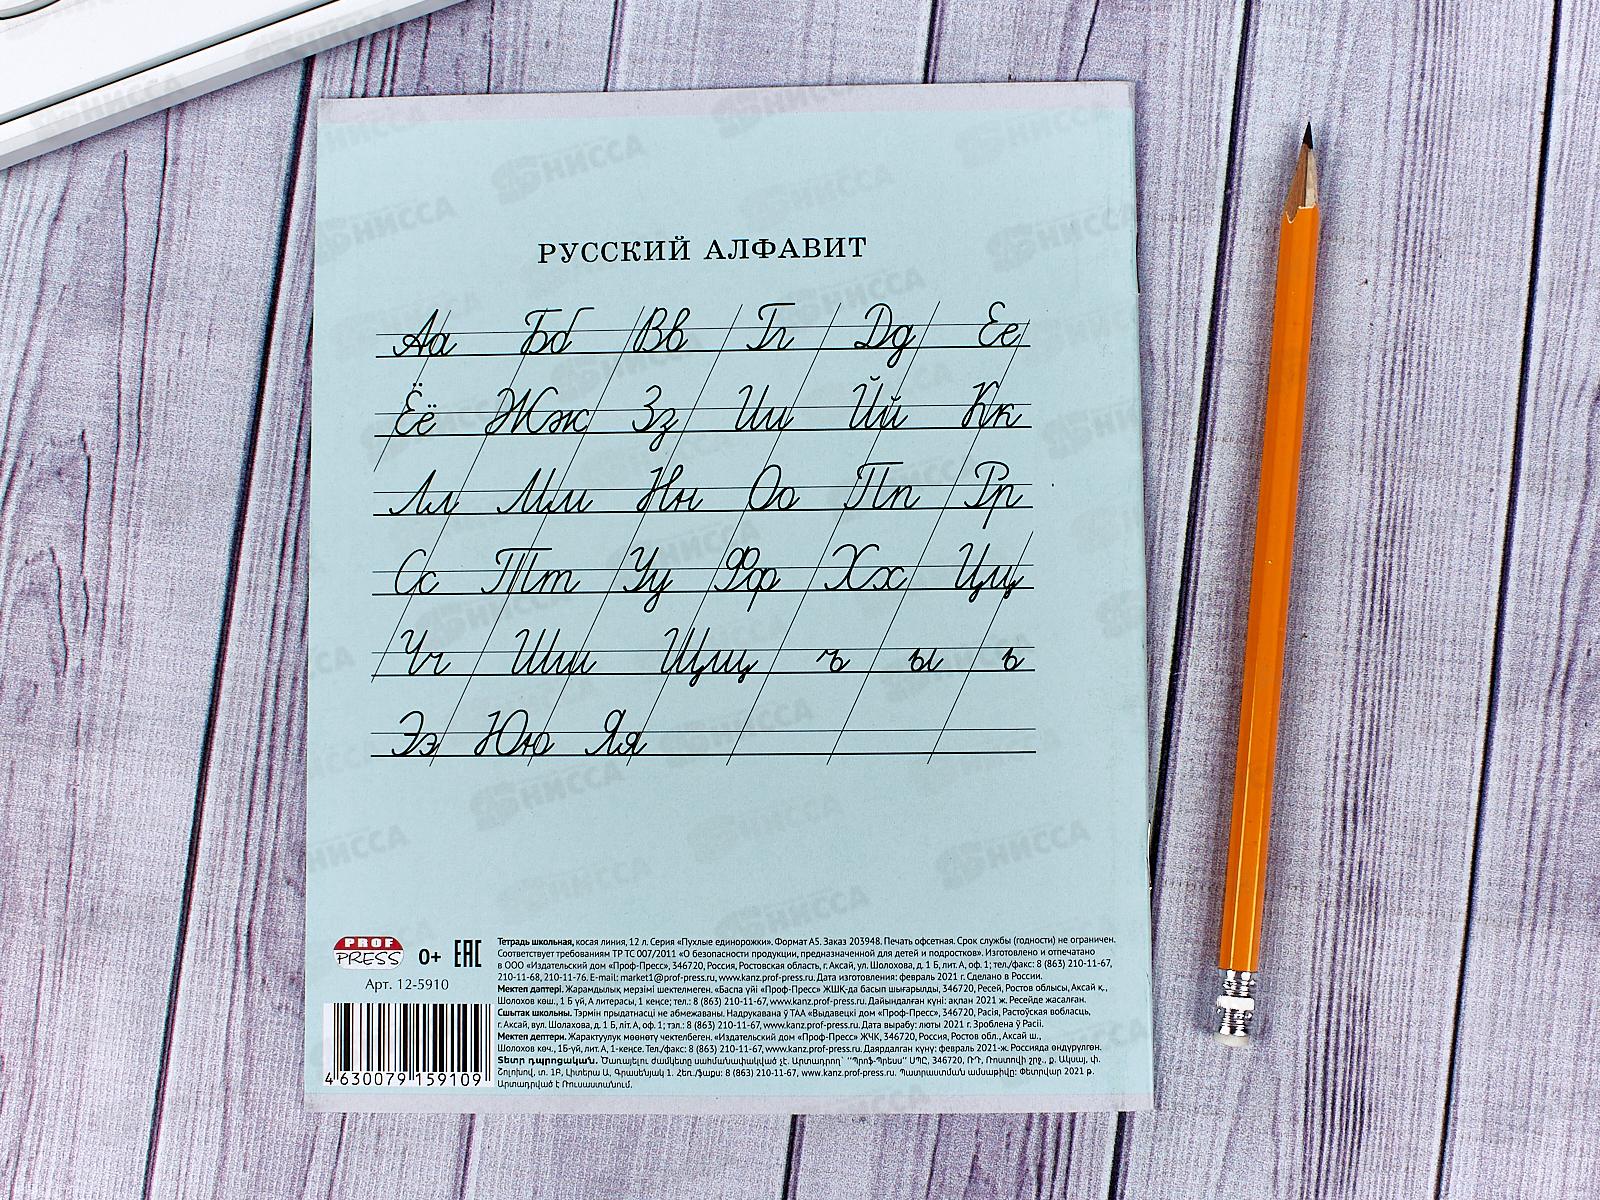 РУССКИЙ АЛФАВИТ
Аа Бб Вв Гг Дд Ее
Ёё Жж Зз Ии Йй Кк
Лл Мм Нн Оо Пп Рр
Сс Тт Уу Фф Хх Цц
Чч Шш Щщ ъ ы ь
Ээ Юю Яя
PROF
PRESS
0+ EAC
Арт. 12-5910
4 630079 159109
Тетрадь школьная, косая линия, 12 л. Серия «Пухлые единорожки». Формат А5. Заказ 203948. Печать офсетная. Срок службы (годности) не ограничен.
Соответствует требованиям ТР ТС 007/2011 «О безопасности продукции, предназначенной для детей и подростков». Изготовлено и отпечатано
в ООО «Издательский дом «Проф-Пресс», 346720, Россия, Ростовская область, г. Аксай, ул. Шолохова, д. 1 Б, лит. А, оф. 1; тел./факс: 8 (863) 210-11-67,
210-11-68, 210-11-76. E-mail: market1@prof-press.ru, www.kanz.prof-press.ru. Дата изготовления: февраль 2021 г. Сделано в России.
Мектеп дәптері. Жарамдылық мерзімі шектелмеген. «Баспа үйі «Проф-Пресс» ЖШҚ-да басып шығарылды, 346720, Ресей, Ростов облысы, Аксай қ.,
Шолохов көш., 1 Б үй, А литерасы, 1 кеңсе; тел.: 8 (863) 210-11-67, www.kanz.prof-press.ru. Дайындалған күні: ақпан 2021 ж. Ресейде жасалған.
Сшытак школьны. Тэрмін прыдатнасці не абмежаваны. Надрукавана ў ТАА «Выдавецкі дом «Проф-Прэс», 346720, Расія, Растоўская вобласць,
г. Аксай, вул. Шолахава, д. 1 Б, літ. А, оф. 1; тэл.: 8 (863) 210-11-67, www.kanz.prof-press.ru. Дата вырабу: люты 2021 г. Зроблена ў Расіі.
Мектеп дептери. Жарактуулук мөөнөтү чектелбеген. «Издательский дом «Проф-Пресс» ЖЧК, 346720, Россия, Ростов обл., Аксай ш.,
Шолохов көч., 1Б-үй, лит. А, 1-кеңсе. Тел./факс: 8 (863) 210-11-67, www.kanz.prof-press.ru. Даярдалган күнү: февраль 2021-ж. Россияда өндүрүлгөн.
Տետր դպրոցական. Ծառայելու ժամկետը սահմանափակված չէ. Արտադրող՝ ''Պրոֆ-Պրեսս'' ՍՊԸ, 346720, ՌԴ, Ռոստովի շրջ., ք. Ակսայ, փ.
Շոլոխով, տ. 1Բ, Լիտերա Ա, Գրասենյակ 1. Հեռ./ֆաքս: 8 (863) 210-11-67, www.kanz.prof-press.ru. Պատրաստման ամսաթիվը: Փետրվար 2021 թ.
Արտադրված է Ռուսաստանում.